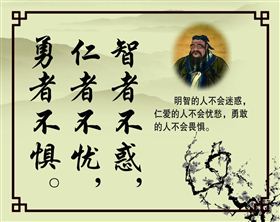 智者不惑，
仁者不忧，
勇者不惧。
明智的人不会迷惑，
仁爱的人不会忧愁，勇敢
的人不会畏惧。